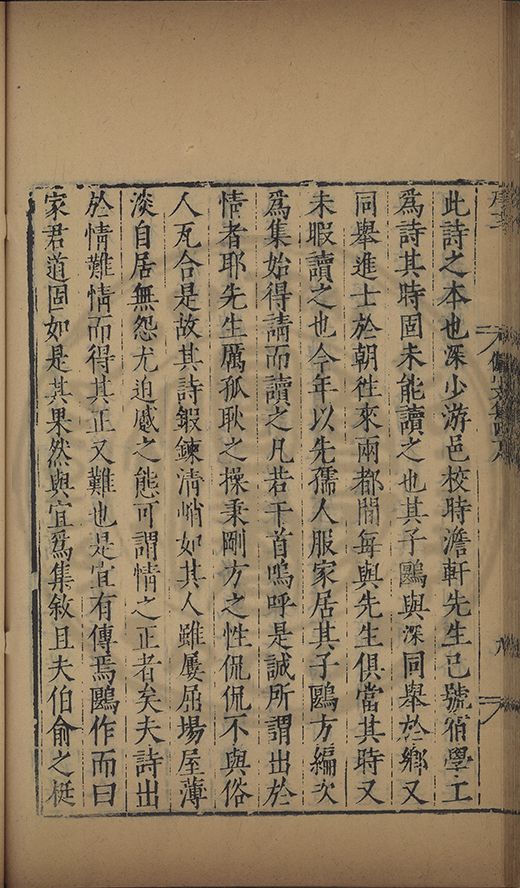 此詩之本也深少游邑校時澹軒先生已號宿學工
爲詩其時固未能讀之也其子鷗與深同舉於鄉又
同舉進士於朝徃來兩都間每與先生俱當其時又
未暇讀之也今年以先孺人服家居其子鷗方編次
爲集始得請而讀之凡若干首嗚呼是誠所謂出於
情者耶先生厲孤耿之操秉剛方之性侃侃不與俗
人瓦合是故其詩鍛鍊清峭如其人雖屢屈場屋薄
淡自居無怨尤迫慼之態可謂情之正者矣夫詩出
於情難情而得其正又難也是宜有傳焉鷗作而曰
家君道固如是其果然與宜爲集敘且夫伯俞之梃